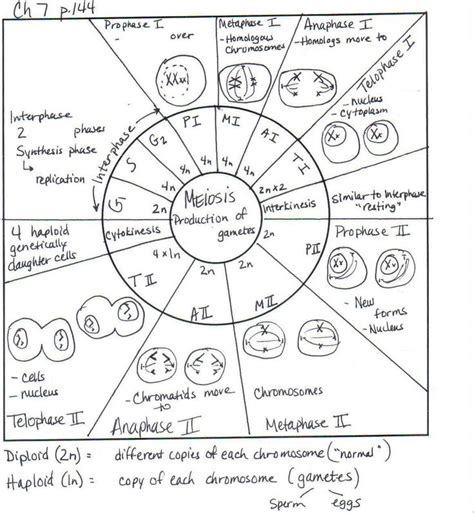 Ch 7 p.144
Prophase I
- over
Metaphase I
- Homologous
Chromosomes
Anaphase I
- Homologs move to
Telophase I
- nucleus
- cytoplasm
Interphase
2 phases
Synthesis phase
replication
Interphase
G2
S
G
PI
MI
AI
TI
4n
4n
4n
4n
4n
2n
2n x 2
Meiosis
Production of
gametes
Interkinesis
Similar to Interphase
"resting"
4 haploid
genetically
daughter cells
Cytokinesis
4 x 1n
2n
2n
2n
TII
AII
MII
PII
Prophase II
- New
forms
- Nucleus
- cells
- nucleus
Telophase II
- Chromatids move
to
Anaphase II
Chromosomes
Metaphase II
Diploid (2n) = different copies of each chromosome ("normal")
Haploid (1n) = copy of each chromosome (gametes)
Sperm eggs